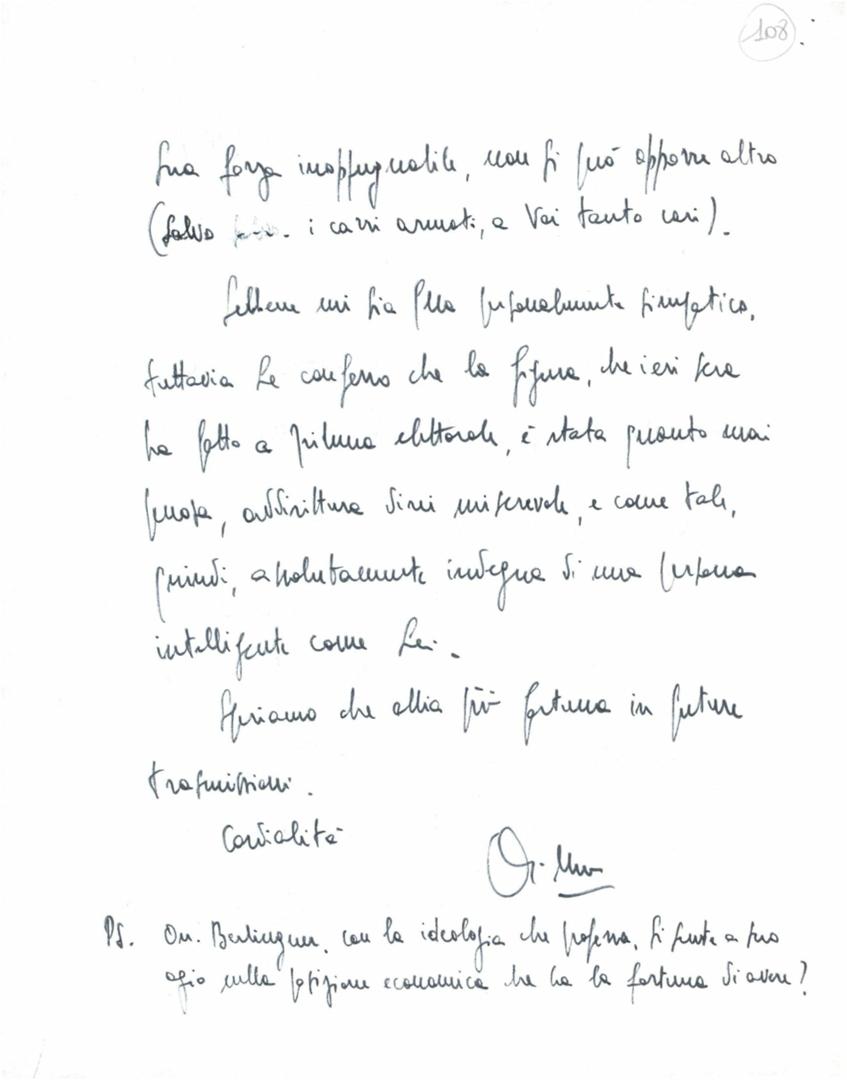 108
Sua forza inoppugnabile, non si può opporre altro
(salvo i carri armati, a Voi tanto cari).
Sebbene mi sia Ella personalmente simpatico,
tuttavia Le confesso che la figura, che ieri sera
ha fatto a Tribuna elettorale, è stata quanto mai
penosa, addirittura direi miserevole, e come tale,
quindi, assolutamente indegna di una persona
intelligente come Lei.
Speriamo che abbia più fortuna in future
trasmissioni.
Cordialità
PS. On. Berlinguer, con la ideologia che professa, si sente a suo
agio nella posizione economica che ha la fortuna di avere?